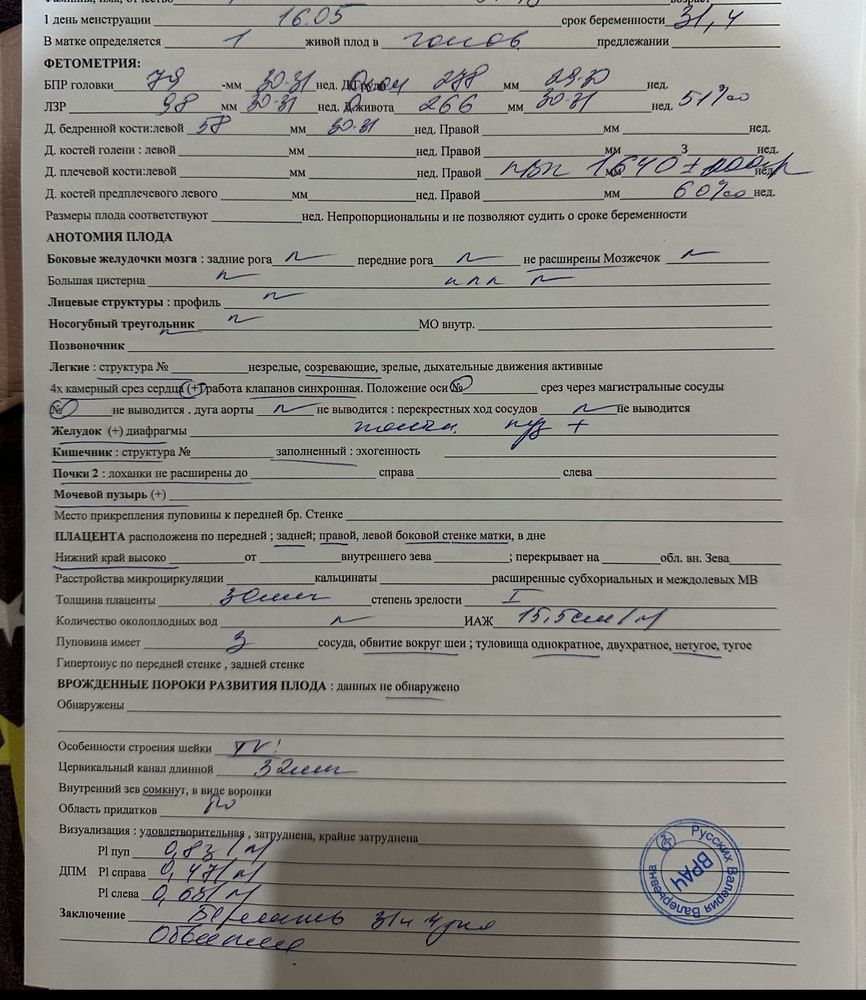 1 день менструации 16.05 срок беременности 31,4
В матке определяется 1 живой плод в голов. предлежании
ФЕТОМЕТРИЯ:
БПР головки 79 -мм 30-31 нед. 278 мм 29-30 нед.
ЛЗР 98 мм 30-31 нед. Д.живота 266 мм 30-31 нед. 51%
Д. бедренной кости:левой 58 мм 30-31 нед. Правой мм нед.
Д. костей голени : левой мм нед. Правой мм 3 нед.
Д. плечевой кости:левой мм нед. Правой 1640 ± 200гр мм нед.
Д. костей предплечевого левого мм нед. Правой мм 60% нед.
Размеры плода соответствуют нед. Непропорциональны и не позволяют судить о сроке беременности
АНОТОМИЯ ПЛОДА
Боковые желудочки мозга : задние рога N передние рога N не расширены Мозжечок N
Большая цистерна N ппп N
Лицевые структуры : профиль N
Носогубный треугольник N МО внутр.
Позвоночник N
Легкие : структура № незрелые, созревающие, зрелые, дыхательные движения активные
4х камерный срез сердца (+) работа клапанов синхронная. Положение оси № срез через магистральные сосуды
№ не выводится . дуга аорты N не выводится : перекрестных ход сосудов N не выводится
Желудок (+) диафрагмы пуз +
Кишечник : структура № заполненный : эхогенность
Почки 2 : лоханки не расширены до справа слева
Мочевой пузырь (+)
Место прикрепления пуповины к передней бр. Стенке
ПЛАЦЕНТА расположена по передней ; задней; правой, левой боковой стенке матки, в дне
Нижний край высоко от внутреннего зева ; перекрывает на обл. вн. Зева
Расстройства микроциркуляции кальцинаты расширенные субхориальных и междолевых МВ
Толщина плаценты 30мм степень зрелости I
Количество околоплодных вод N ИАЖ 15,5см/N
Пуповина имеет 3 сосуда, обвитие вокруг шеи ; туловища однократное, двухратное, нетугое, тугое
Гипертонус по передней стенке , задней стенке
ВРОЖДЕННЫЕ ПОРОКИ РАЗВИТИЯ ПЛОДА : данных не обнаружено
Обнаружены
Особенности строения шейки TV!
Цервикальный канал длинной 32мм
Внутренний зев сомкнут, в виде воронки
Область придатков
Визуализация : удовлетворительная , затруднена, крайне затруднена
PI пуп 0,83/N
ДПМ PI справа 0,47/N
PI слева 0,63/N
Заключение Беремень 31н 4дня
Обвитие
Русских Валерия Валерьевна
ВРАЧ